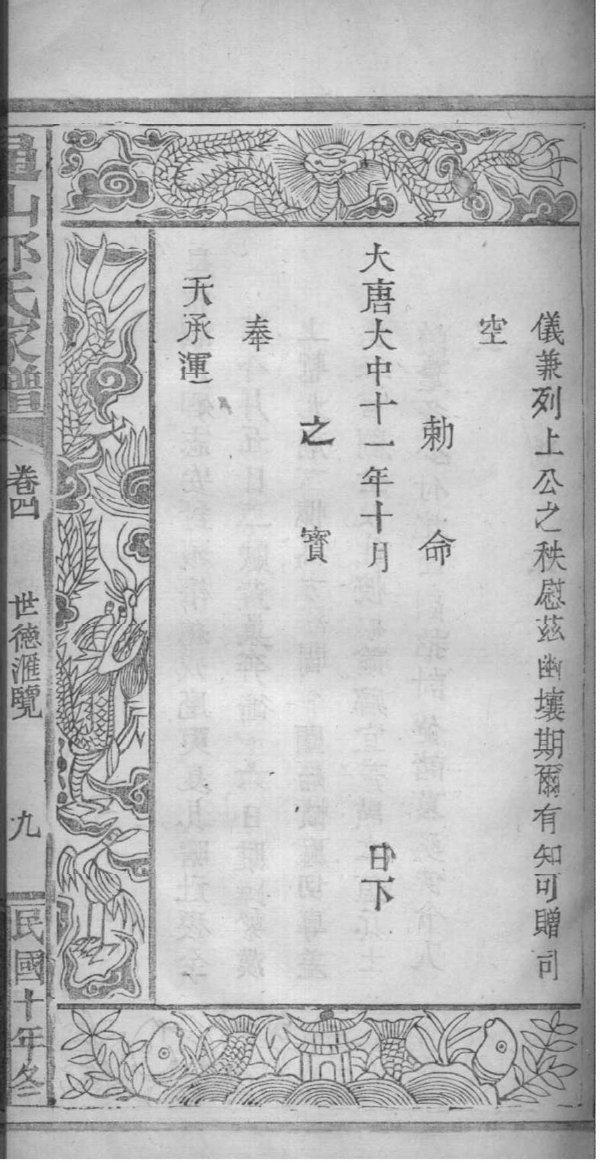 儀兼列上公之秩慰茲幽壤期爾有知可贈司
空
勅命
大唐大中十一年十月 日下
之寶
奉
天承運
山
氏家譜
卷四
世德滙覽
九
民國十年冬